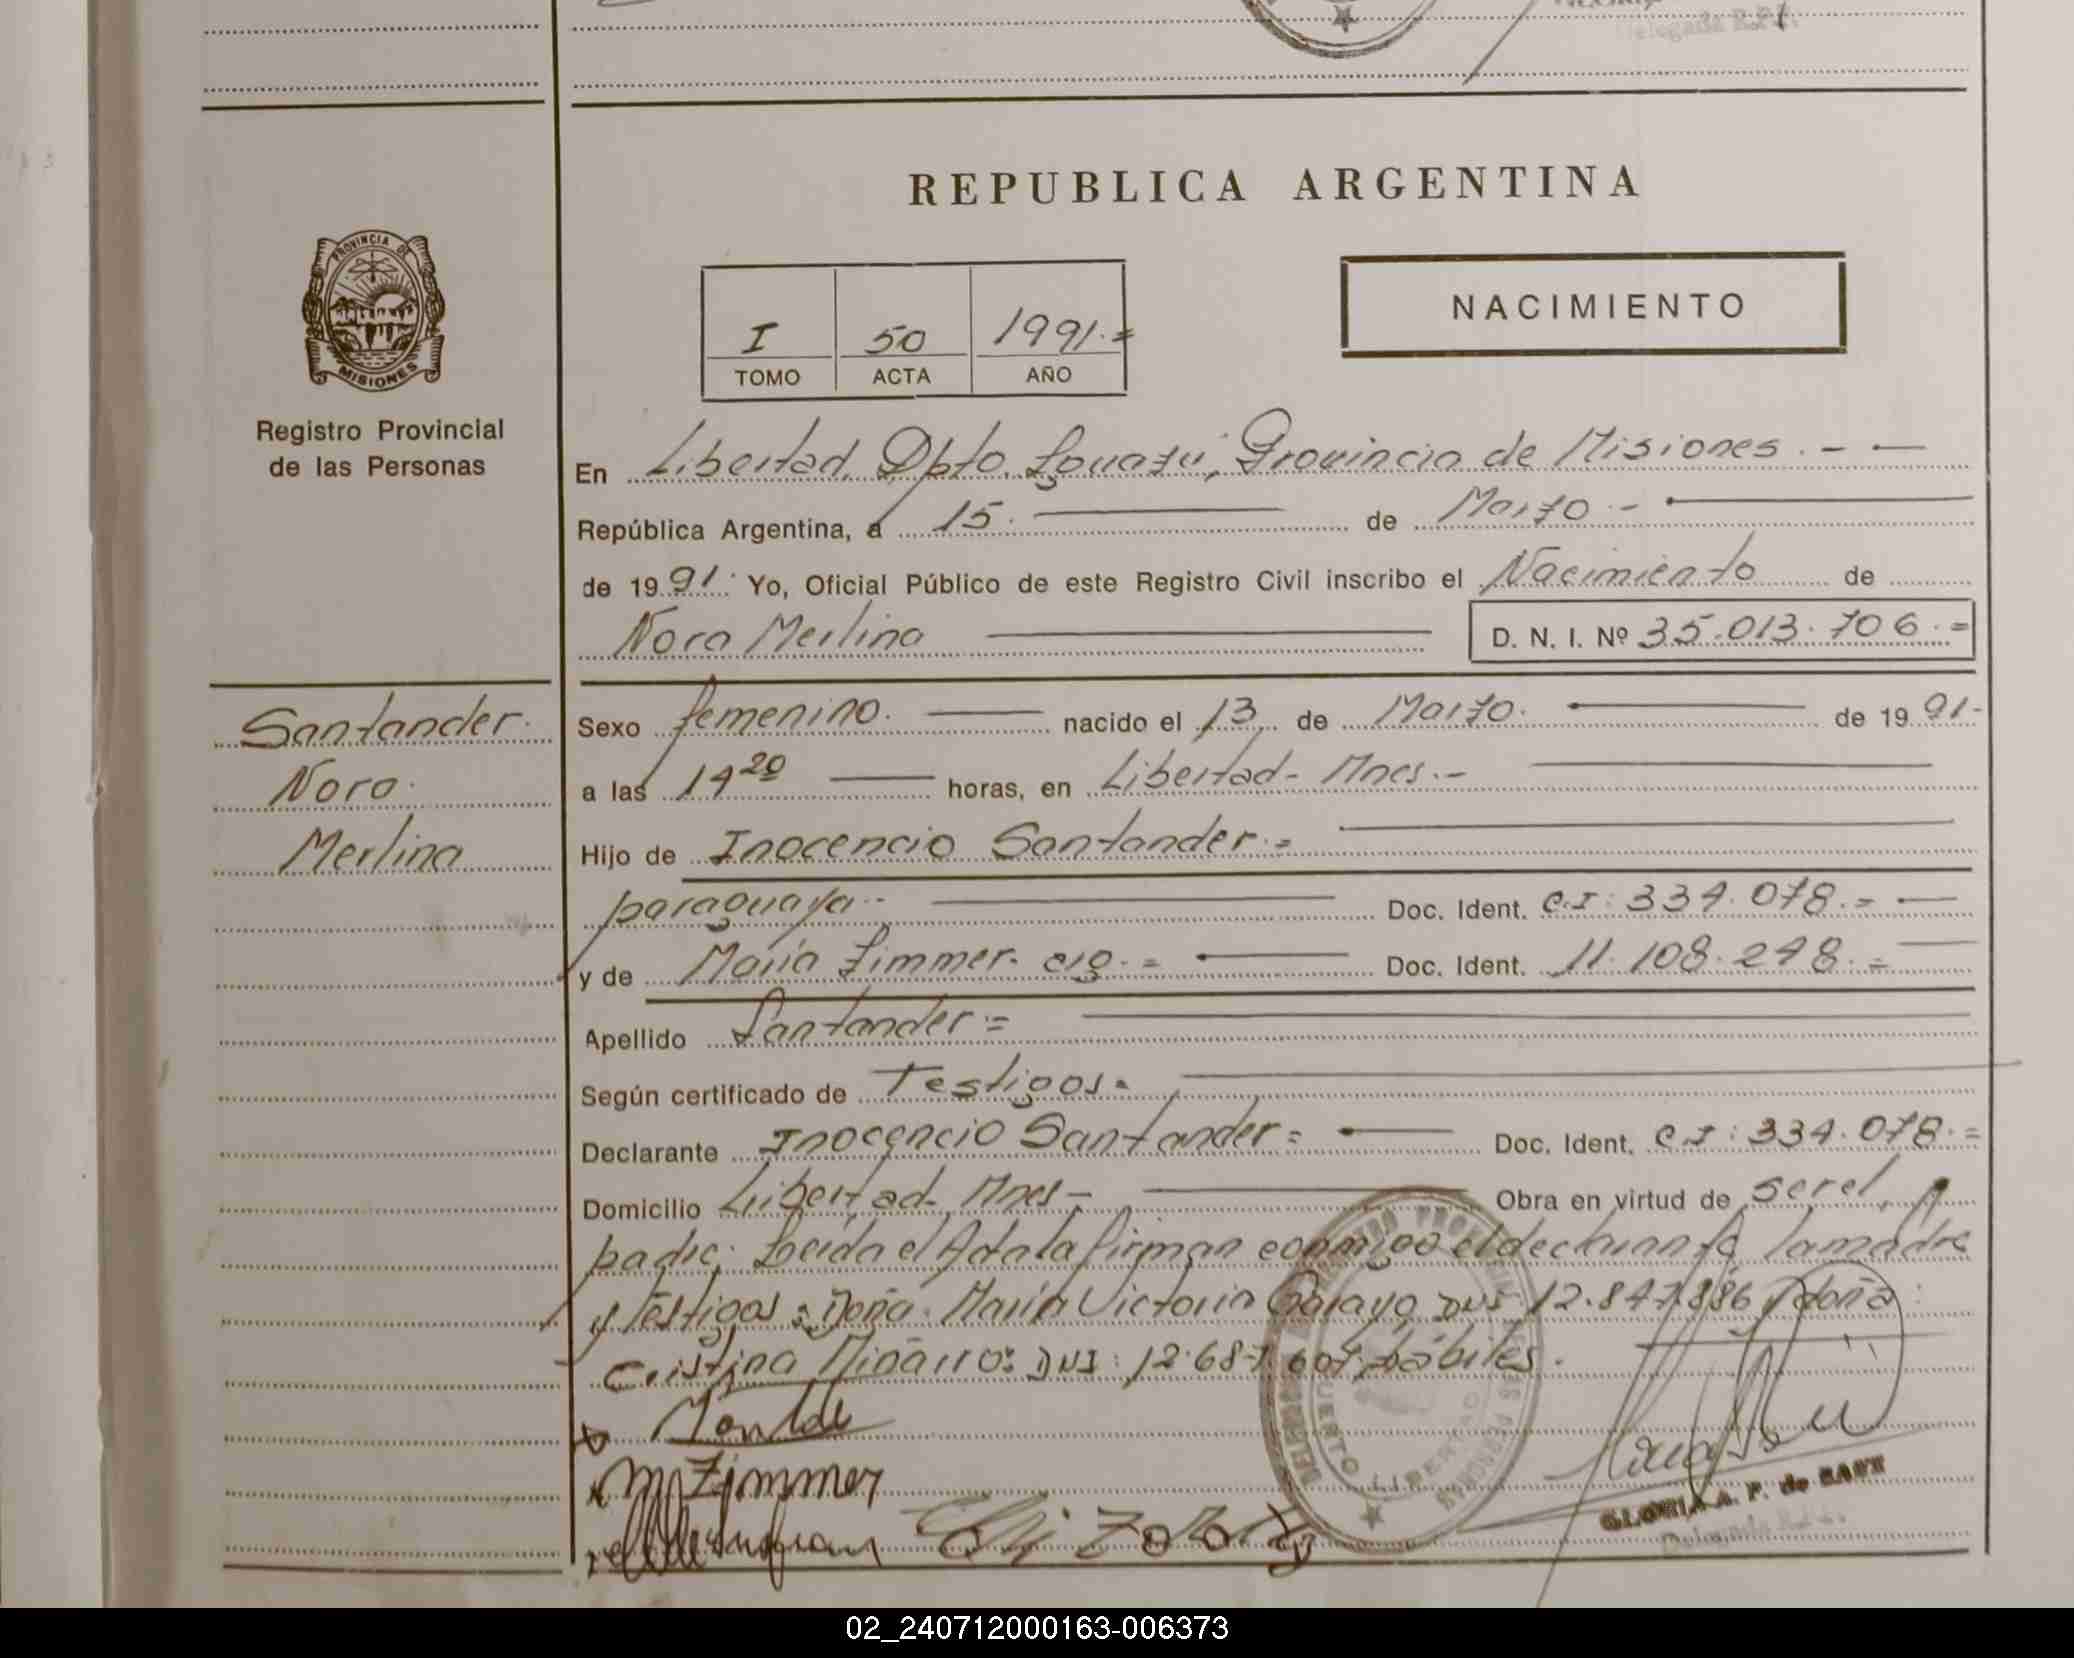 Delegada R.P.P.
REPUBLICA ARGENTINA
PROVINCIA DE
MISIONES
Registro Provincial
de las Personas
NACIMIENTO
I 50 1991.=
TOMO ACTA AÑO
En Libertad, Dpto. Iguazú, Provincia de Misiones. - —
República Argentina, a 15. — de Marzo. - —
de 1991. Yo, Oficial Público de este Registro Civil inscribo el Nacimiento de
Nora Merlina — D. N. I. Nº 35.013.706.=
Santander.
Nora.
Merlina
Sexo femenino. — nacido el 13 de Marzo. — de 1991-
a las 14 20 — horas, en Libertad - Mnes. - —
Hijo de Inocencio Santander.= —
paraguaya - — Doc. Ident. C.I: 334.078.= —
y de María Zimmer. arg.= — Doc. Ident. 11.108.248.= —
Apellido Santander.= —
Según certificado de Testigos. —
Declarante Inocencio Santander= — Doc. Ident. C.I: 334.078.=
Domicilio Libertad, Mnes- — Obra en virtud de ser el
padre. Leida el Acta la firman conmigo el declarante, la madre
y Testigos: Doña. María Victoria DNI 12.847.886 y doña:
Cristina Miñarro: DNI: 12.687.607. hábiles.
M Zimmer
PUERTO LIBERTAD
GLORIA A. F. de
Delegada R.P.P.
02_240712000163-006373